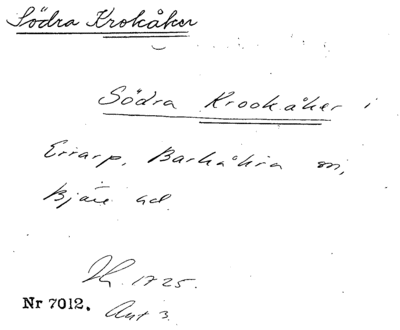 Södra Krokåker
Södra Krookåker i
Eriarp, Barkåkra sn,
Bjäre hd.
1725.
Nr 7012. Akt 3.